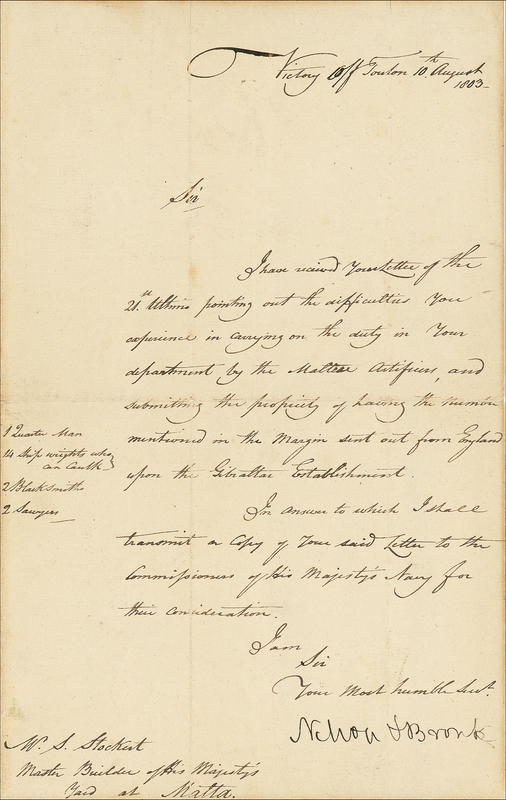 Victory Off Toulon 10th August
1803
Sir
I have recieved Your Letter of the
21st Ultimo pointing out the difficulties You
experience in carrying on the duty in Your
department by the Maltese Artificers, and
submitting the propriety of having the number
mentioned in the Margin sent out from England
upon the Gibraltar Establishment.
1 Quarter Man
14 Ship wrights who
can Caulk
2 Blacksmiths
2 Sawyers
In answer to which I shall
transmit a Copy of Your said Letter to the
Commissioners of His Majesty's Navy for
their consideration.
I am
Sir
Your Most humble Servt.
Nelson & Bronte
Mr. S. Stockert
Master Builder of His Majesty's
Yard at Malta.